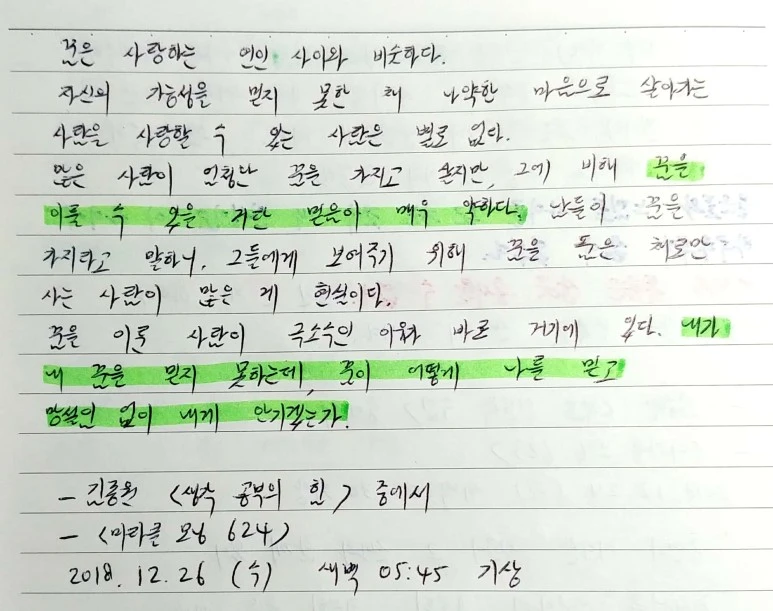 꿈은 사랑하는 연인 사이와 비슷하다.
자신의 가능성을 믿지 못한 채 나약한 마음으로 살아가는
사람을 사랑할 수 있는 사람은 별로 없다.
많은 사람이 엄청난 꿈을 가지고 살지만, 그에 비해 꿈을
이룰 수 있을 거란 믿음이 매우 약하다. 남들이 꿈을
가지라고 말하니, 그들에게 보여주기 위해 꿈을 품은 채로만
사는 사람이 많은 게 현실이다.
꿈을 이룬 사람이 극소수인 이유가 바로 거기에 있다. 내가
내 꿈을 믿지 못하는데, 꿈이 어떻게 나를 믿고
망설인 없이 내게 안기겠는가.
- 김종원 <생각 공부의 힘> 중에서
- <미라클 모닝 624>
2018. 12. 26 (수) 새벽 05:45 기상